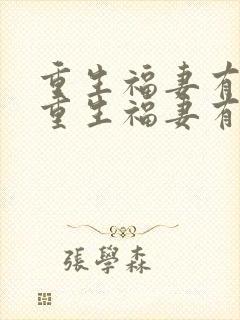 重生福妻有
重生福妻有
張學森